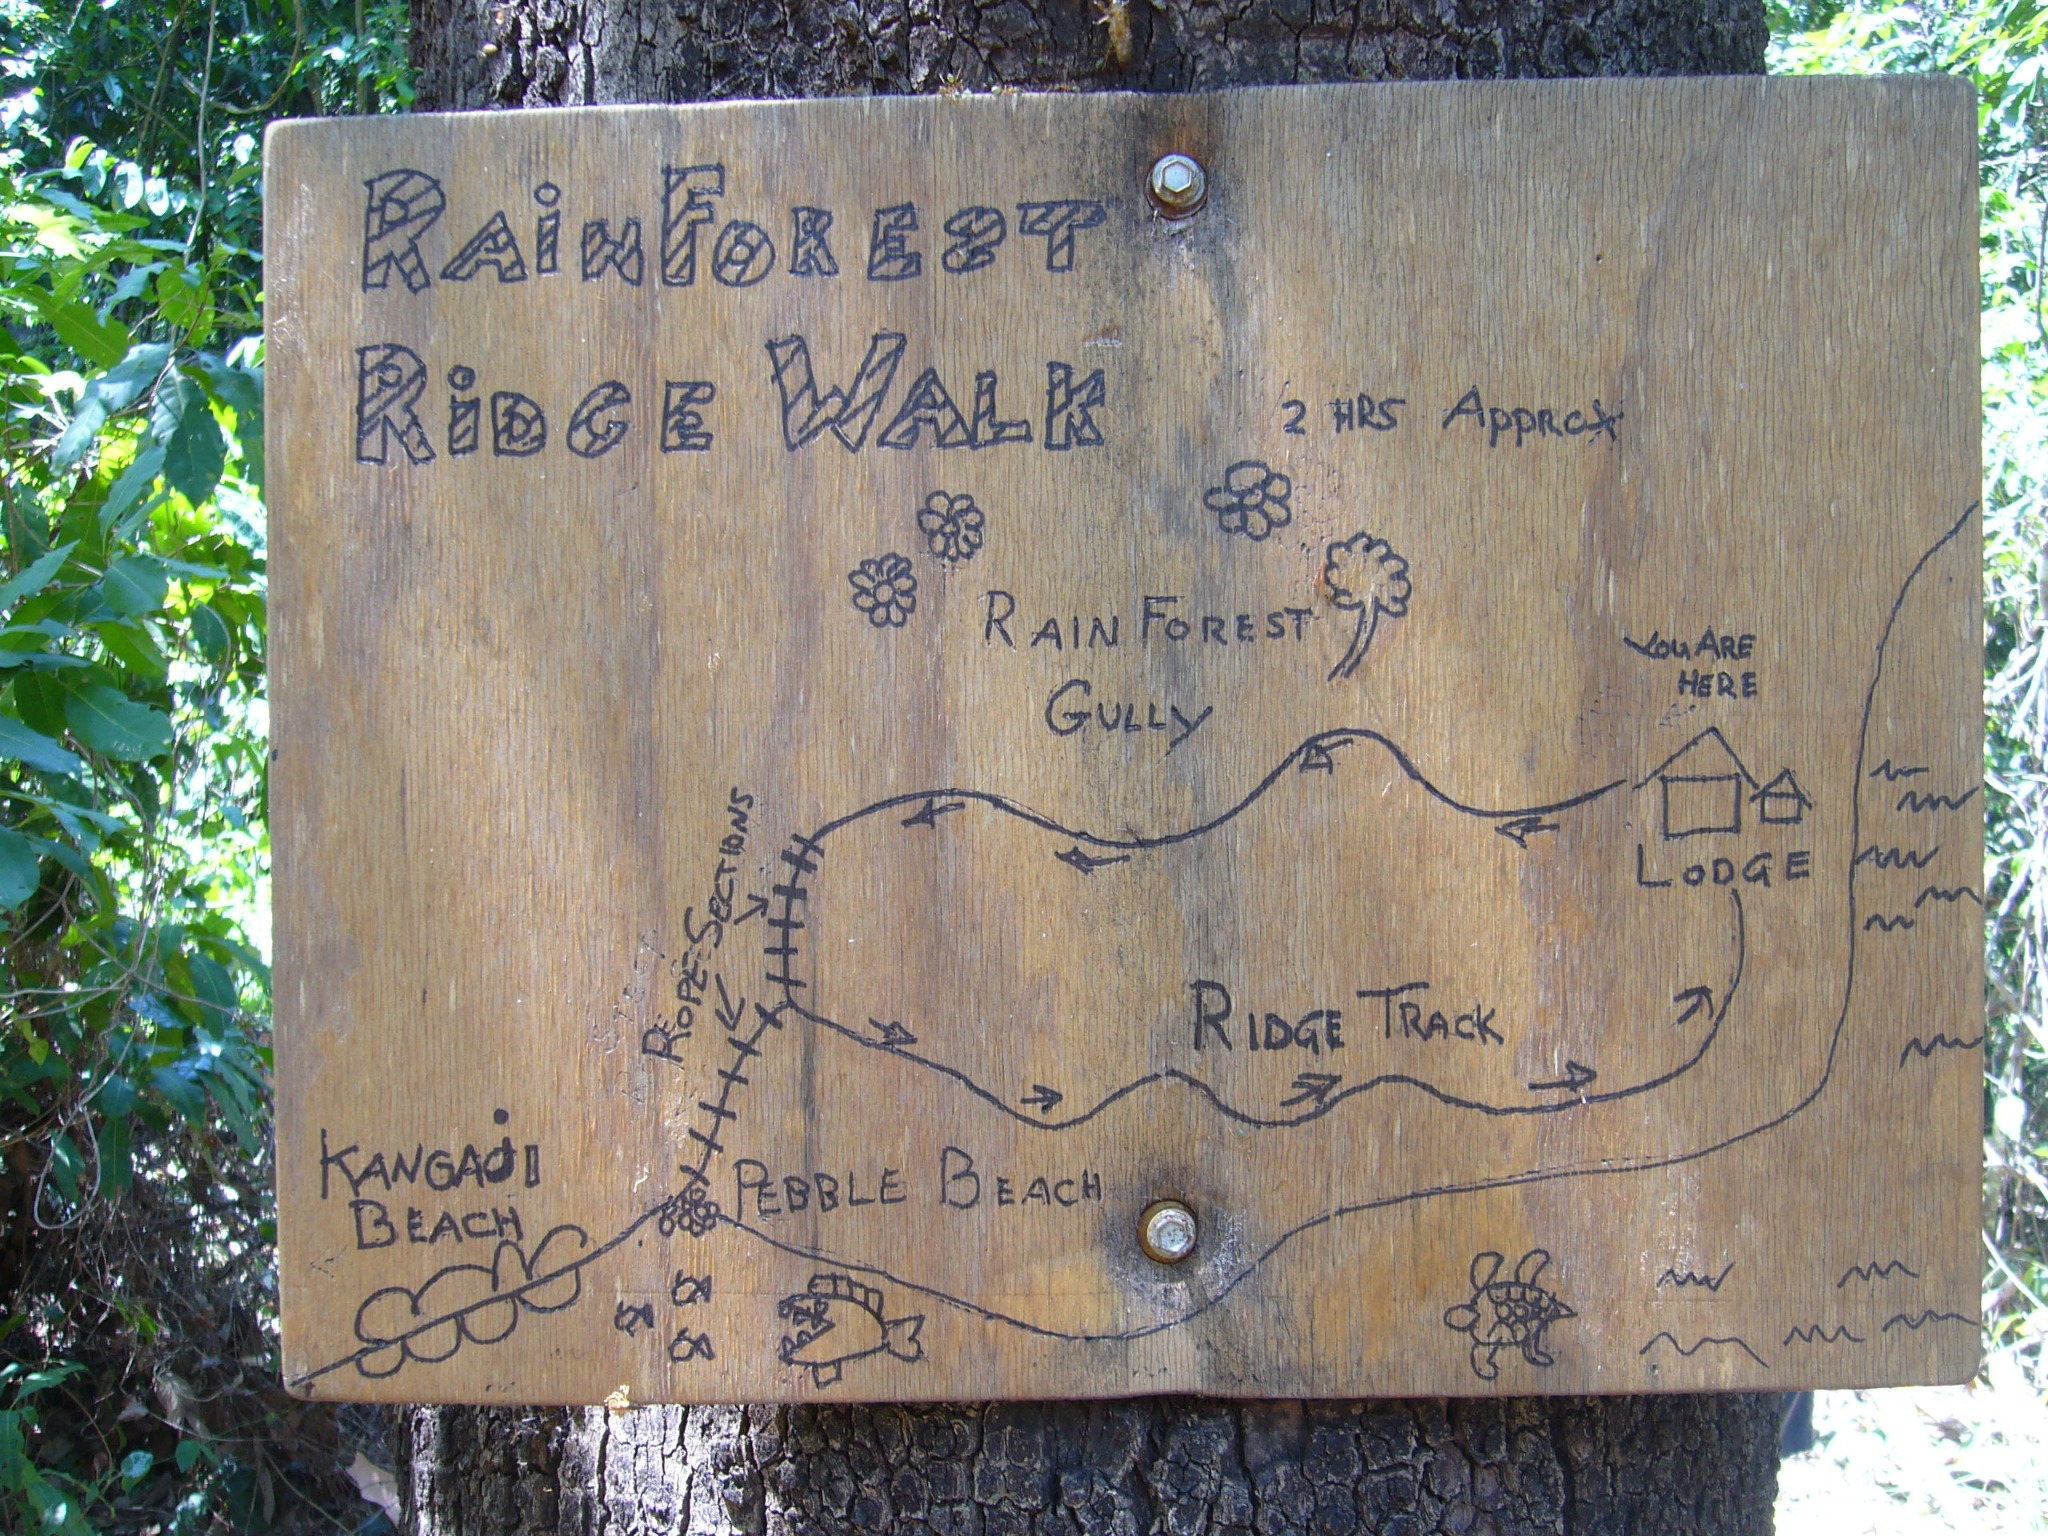 RAiNFOREST
RiDGE WALK
2 HRS Approx
RAIN FOREST
GULLY
YOU ARE
HERE
LODGE
ROPE SECTIONS
RIDGE TRACK
KANGAJI
BEACH
PEBBLE BEACH